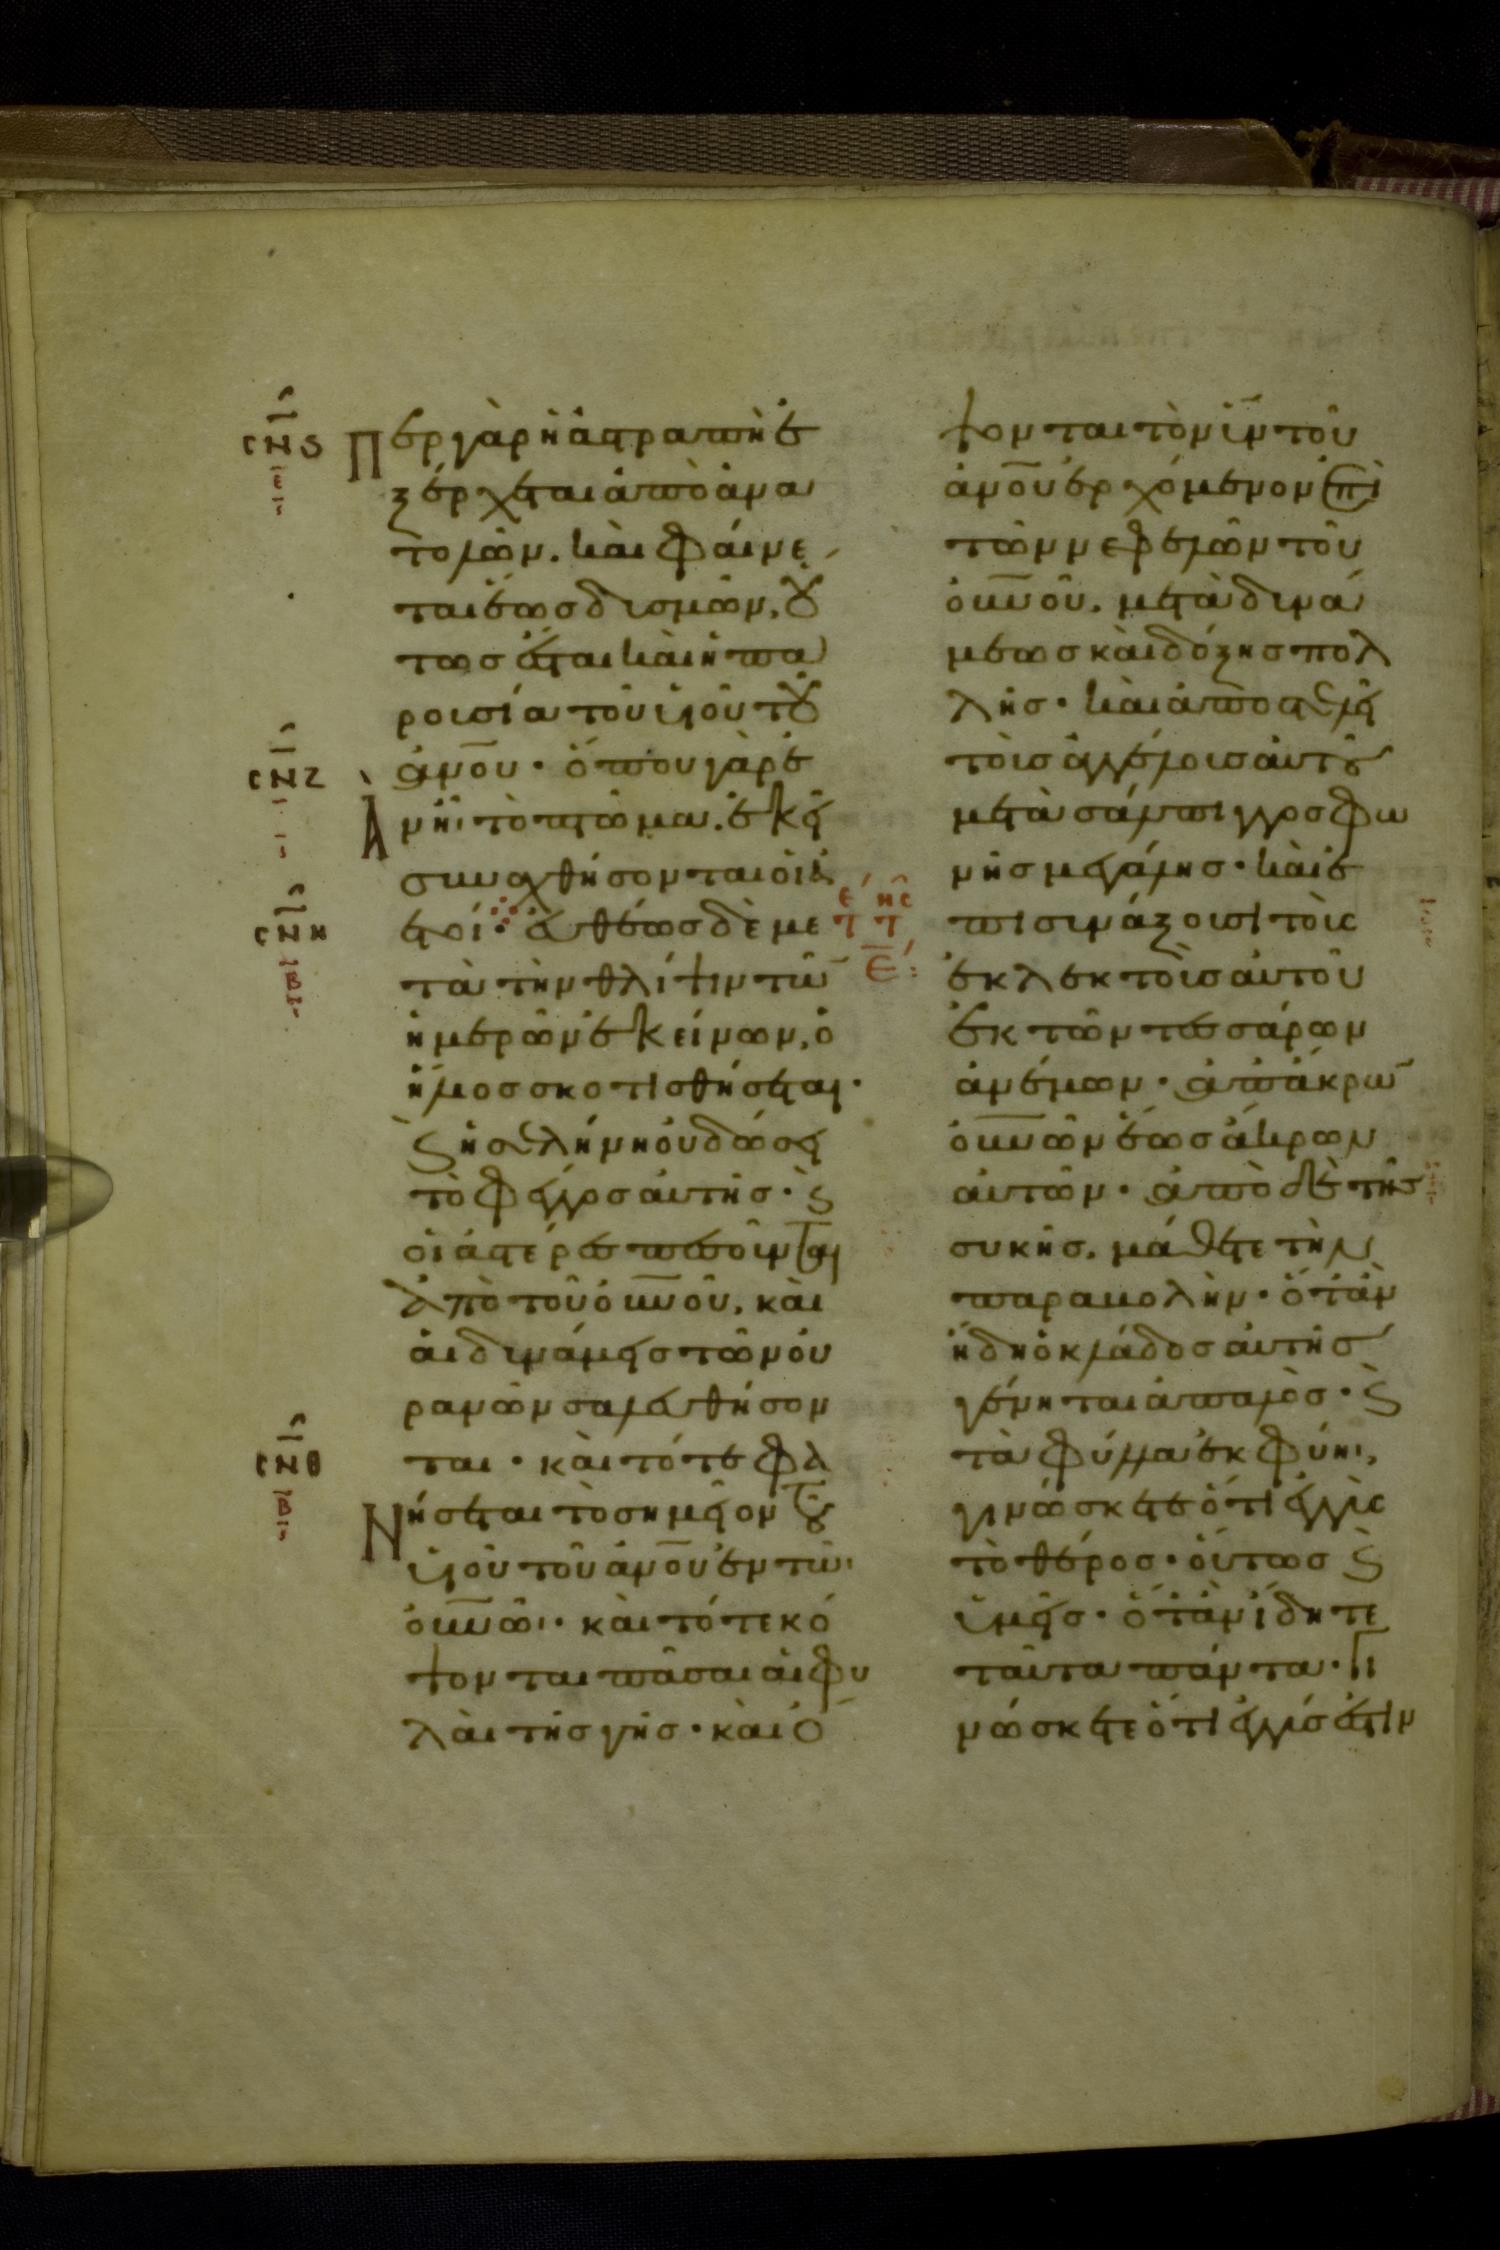 ϹΝϚ
Ε
Περ γὰρ ἡ ἀστραπὴ ἐ
ξέρχεται ἀπὸ ἀνα
τολῶν. καὶ φαίνε
ται ἕως δισμῶν, οὕ
τως ἔσται καὶ ἡ πα
ρουσία τοῦ υἱοῦ τοῦ
ϹΝΖ
ἀν̅ου· ὅπου γὰρ ἐ
Ὰν ἦι τὸ πτῶμα. ἐκεῖ
συναχθήσονται οἱ ἀ
ϹΝΗ
Β
ετοί· εὐθέως δὲ με
τὰ τὴν θλίψιν τῶ̅
ἡμερῶν ἐκείνων, ὁ
ἥλιος σκοτισθήσεται·
ϗ ἡ σελήνη οὐ δώσει
τὸ φέγγος αὐτῆς· ϗ
οἱ ἀστέρες πεσοῦνται
ἀπὸ τοῦ οὐν̅οῦ, καὶ
αἱ δυνάμεις τῶν οὐ
ρανῶν σαλευθήσον
ϹΝΘ
Β
ται· καὶ τότε φα
Νήσεται τὸ σημεῖον τοῦ
υἱοῦ τοῦ ἀν̅ου ἐν τῶι
οὐν̅ῶι· καὶ τότε κό
ψονται πᾶσαι αἱ φυ
λαὶ τῆς γῆς· καὶ ὄ
ψονται τὸν υἱ̅ν τοῦ
ἀν̅ου ἐρχόμενον ἐπὶ
τῶν νεφελῶν τοῦ
οὐν̅οῦ. μετὰ δυνά
μεως καὶ δόξης πολ
λῆς· καὶ ἀποστελεῖ
τοῖς ἀγγέλοις αὐτοῦ
μετὰ σάλπιγγος φω
νῆς μεγάλης· καὶ ἐ
πισυνάξουσι τοὺς
ἐκλεκτοὺς αὐτοῦ
ἐκ τῶν τεσσάρων
ἀνέμων· ἀπ' ἄκρω̅
οὐν̅ῶν ἕως ἄκρων
αὐτῶν· ἀπὸ δὲ τῆς
συκῆς. μάθετε τὴν
παραβολὴν· ὅτ' ἂν
ἤδη ὁ κλάδος αὐτῆς
γένηται ἁπαλὸς· ϗ
τὰ φύλλα ἐκφύηι,
γινώσκετε ὅτι ἐγγὺς
τὸ θέρος· οὕτως ϗ
ὑμεῖς· ὅτ' ἂν ἴδητε
ταῦτα πάντα· γι
νώσκετε ὅτι ἐγγύς ἐστιν